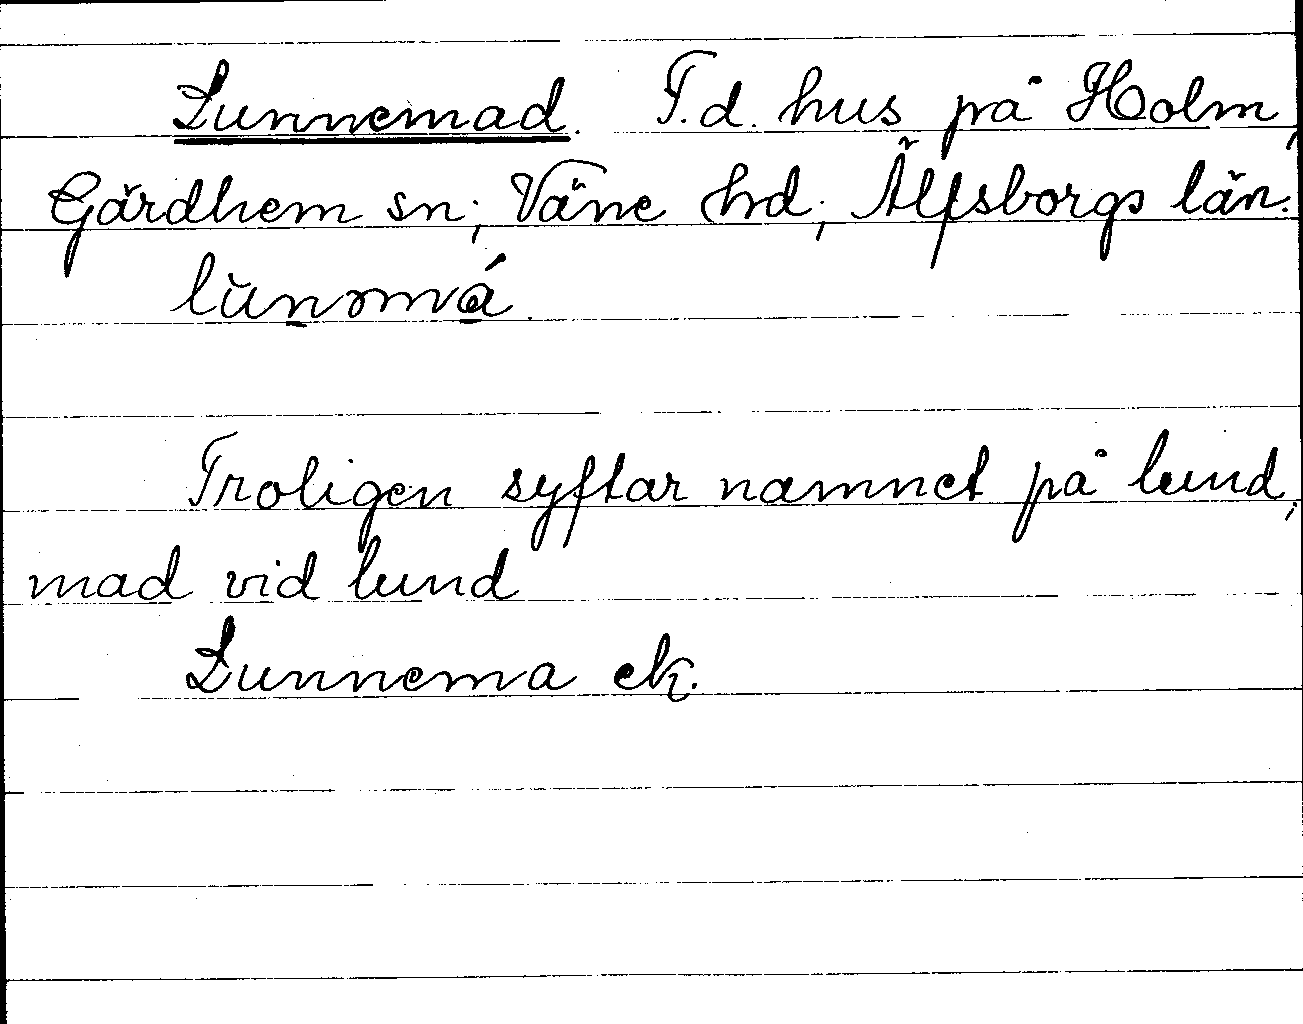 Lunnemad. F.d. hus på Holm,
Gärdhem sn; Väne hd; Älfsborgs län.
lŭnəmá.
Troligen syftar namnet på lund;
mad vid lund
Lunnema ek.